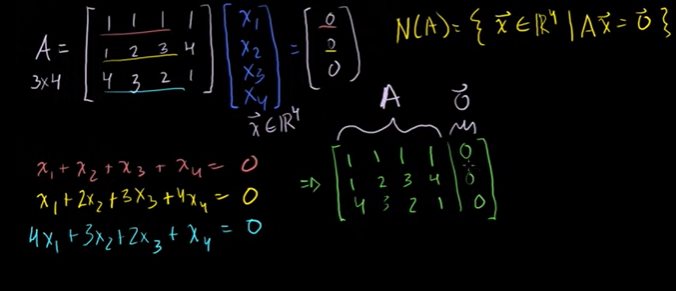 A = [ 1 1 1 1 ] [ x₁ ] = [ 0 ]
3x4 [ 1 2 3 4 ] [ x₂ ] [ 0 ]
[ 4 3 2 1 ] [ x₃ ] [ 0 ]
[ x₄ ]
x⃗ ∈ ℝ⁴
N(A) = { x⃗ ∈ ℝ⁴ | Ax⃗ = 0⃗ }
x₁ + x₂ + x₃ + x₄ = 0
x₁ + 2x₂ + 3x₃ + 4x₄ = 0
4x₁ + 3x₂ + 2x₃ + x₄ = 0
A 0⃗
⇒ [ 1 1 1 1 | 0 ]
[ 1 2 3 4 | 0 ]
[ 4 3 2 1 | 0 ]